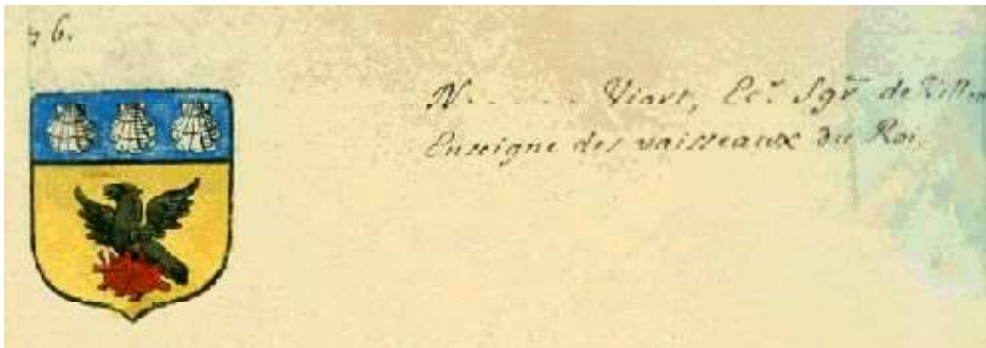 46.
N. . . . . . Viart, Ec.r Sgr. de
Enseigne des vaisseaux du Roi.